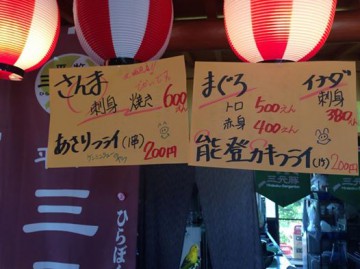 さんま
刺身 焼き 600えん
あさりフライ(串)
200円
まぐろ
トロ 500えん
赤身 400えん
イナダ
刺身
380えん
能登カキフライ(ケ)200円
三元豚
平
三
元
ひらぼく